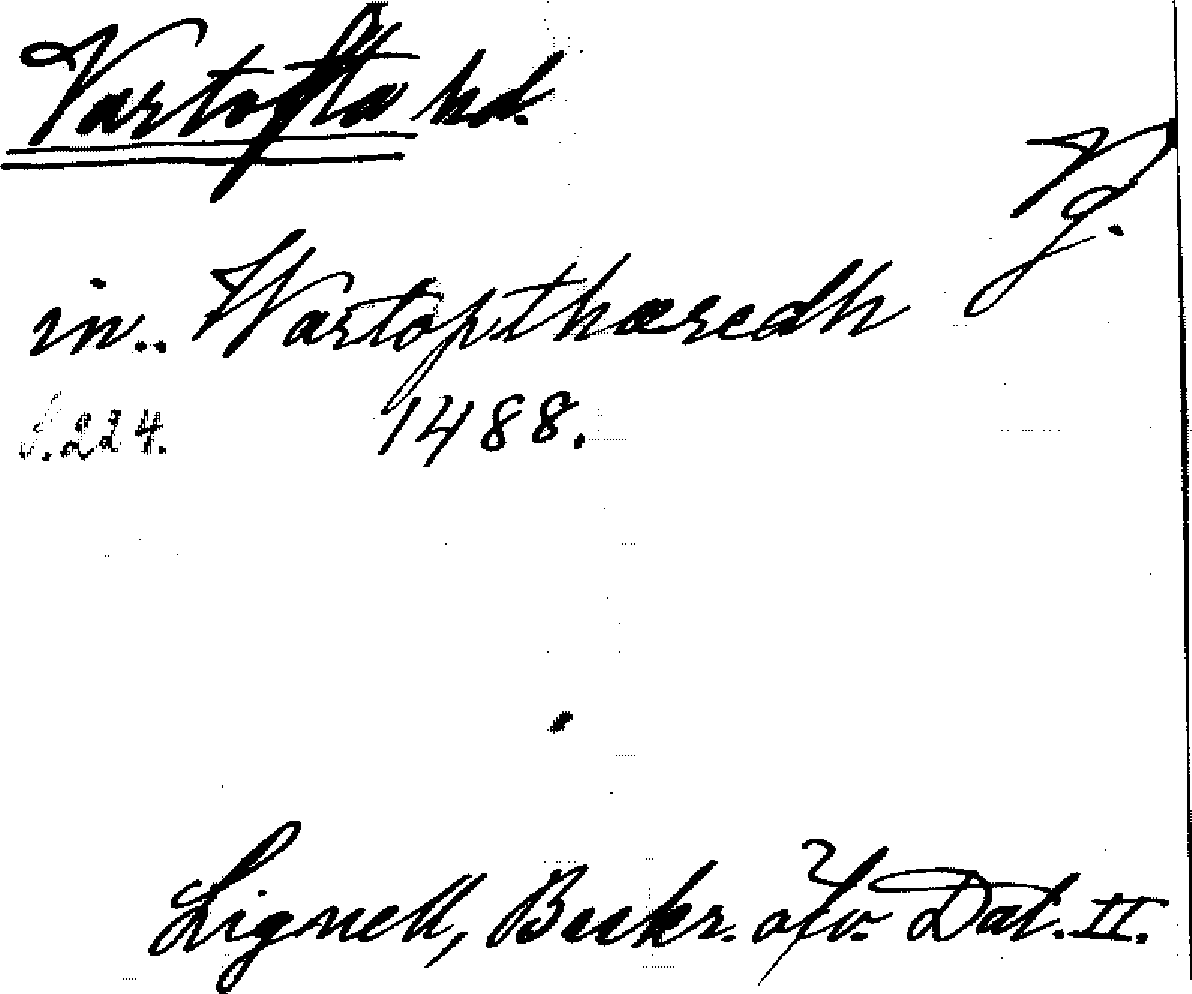 Vartofta hd.
Vg.
in.. Wartopthæredh
S. 224. 1488.
Lignell, Beskr. öfv. Dal. II.